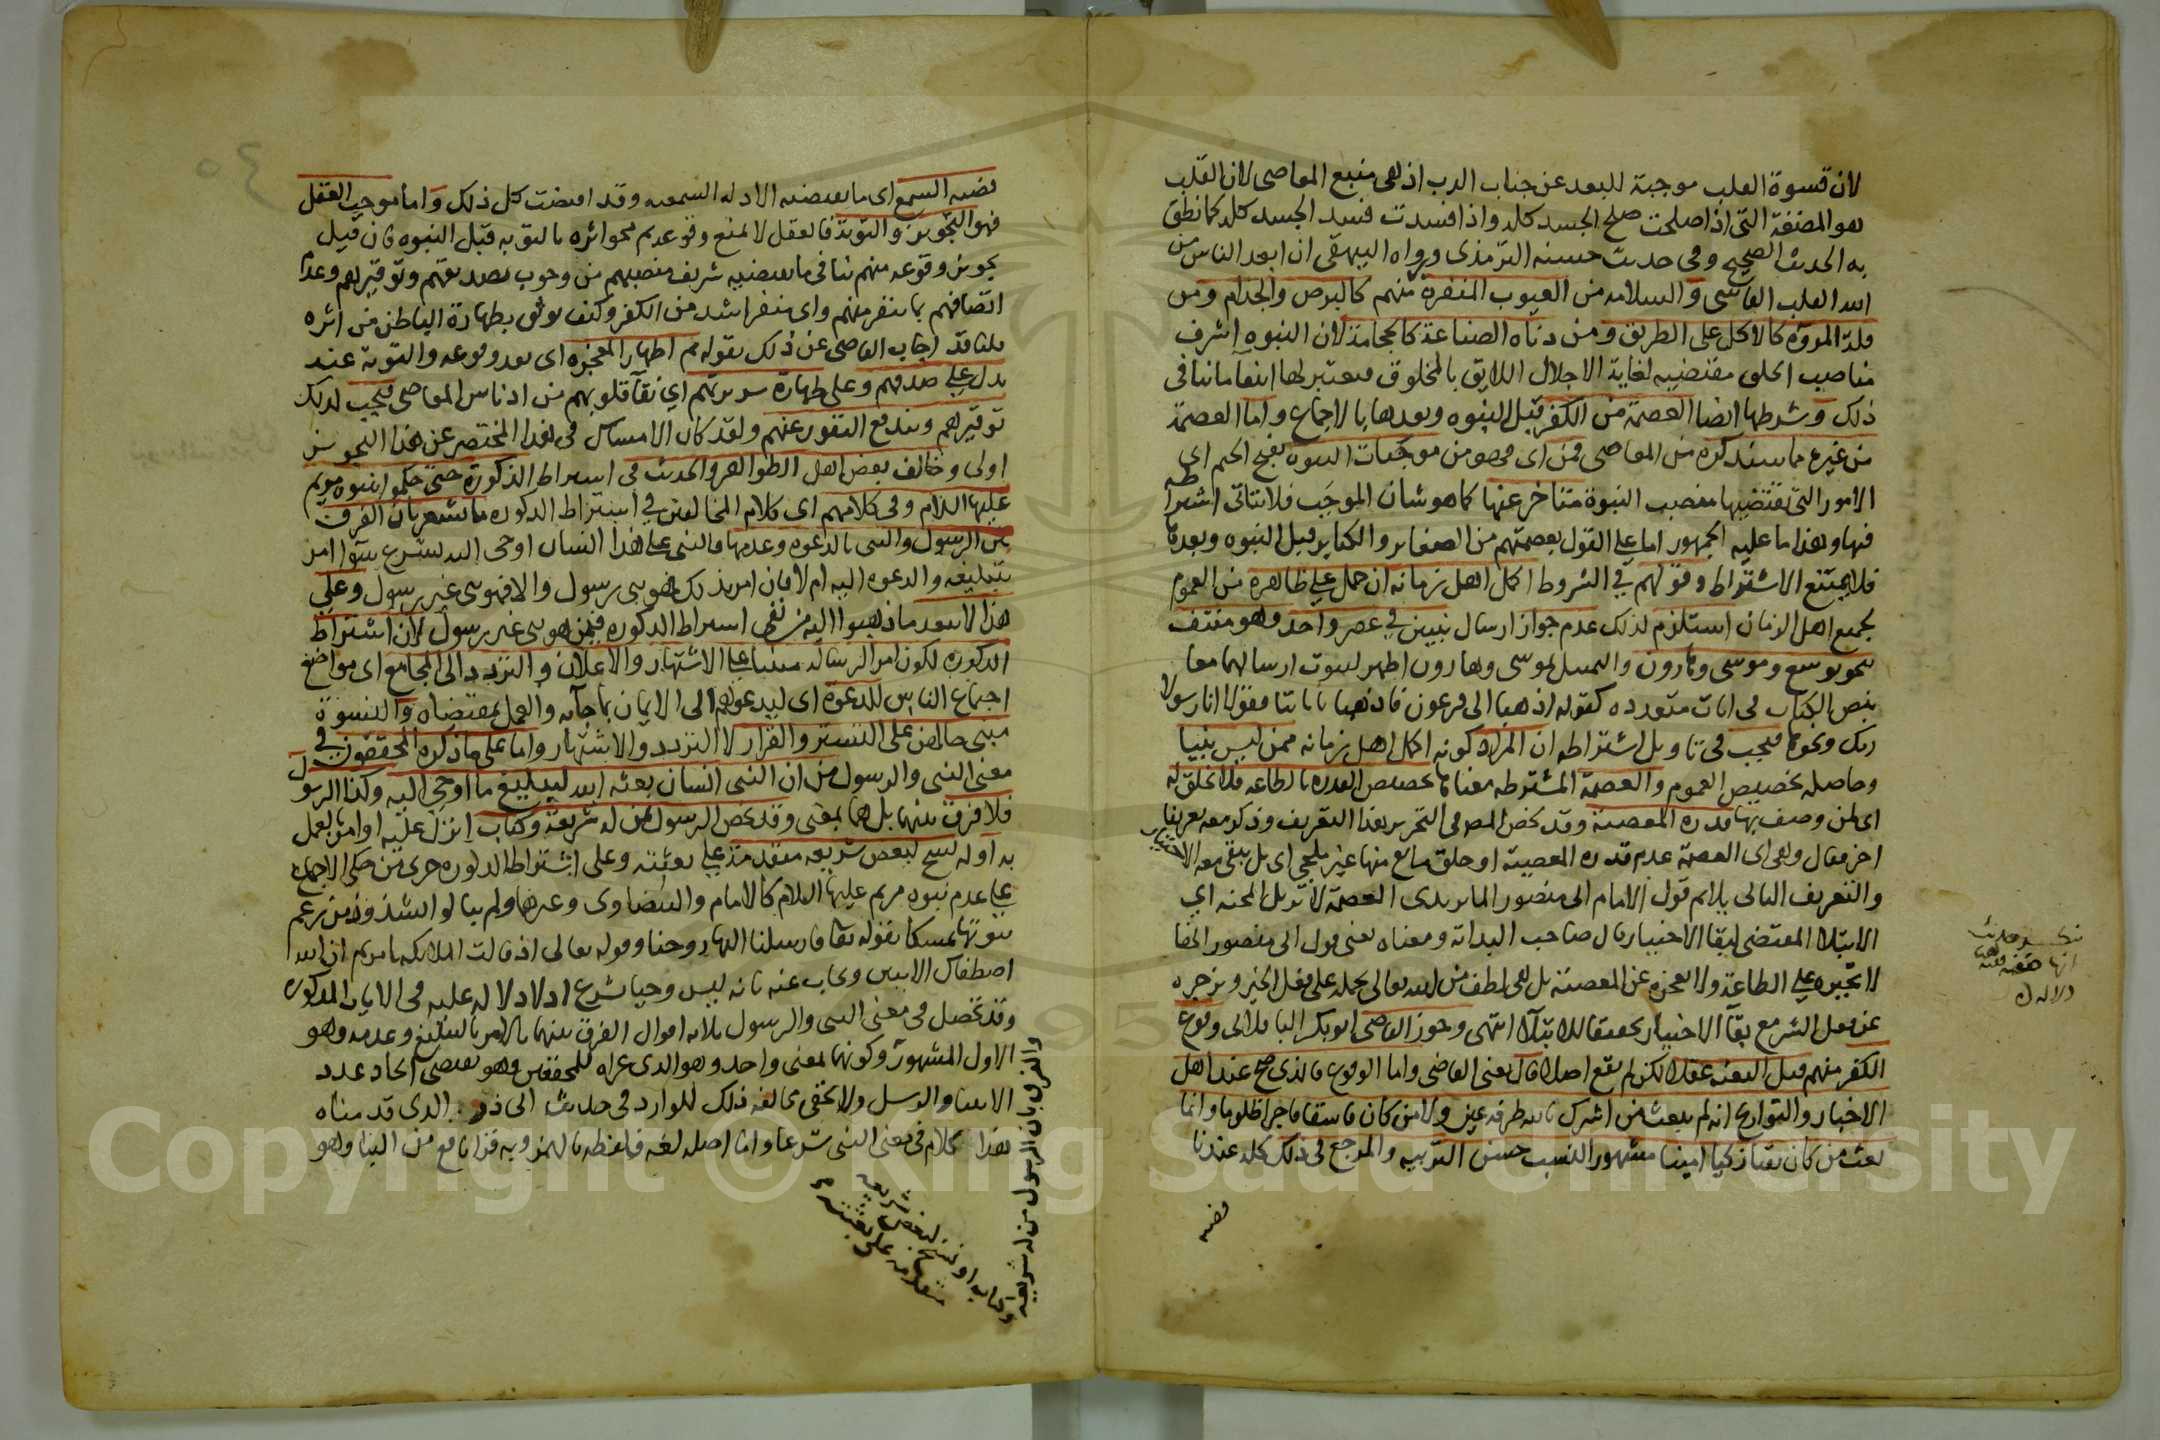 لان قسوة القلب موجبة للبعد عن جناب الرب اذ هى منبع المعاصى لان القلب
هو المضغة التى اذا صلحت صلح الجسد كله واذا فسدت فسد الجسد كله كما نطق
به الحديث الصحيح وفى حديث حسنه الترمذى ورواه البيهقى ان ابعد الناس من
الله القلب القاسى والسلامه من العيوب المنفرة منهم كالبرص والجذام ومن
قلة المروة كالاكل على الطريق ومن دناه الصناعة كالحجامة لان النبوه اشرف
مناصب الخلق مقتضيه لغاية الاجلال اللايق بالمخلوق فيعتبر لها انتفا ما ينافى
ذلك وشرطها ايضا العصمة من الكفر قبل النبوه وبعدها بالاجماع واما العصمة
من غيره مما سنذكره من المعاصى فمن اى فهو من موجبات النبوه بفتح الجيم اى
الامور التى يقتضيها منصب النبوة متاخر عنها كما هو شان الموجَب فلا يتاتى اشتراطه
فيها وهذا ما عليه الجمهور اما على القول بعصمتهم من الصغاير والكباير قبل النبوه وبعدها
فلا يمتنع الاشتراط وقولهم فى الشروط اكمل اهل زمانه ان حمل على ظاهره من العموم
لجميع اهل الزمان استلزم لذلك عدم جواز ارسال نبيين فى عصر واحد وهو منتف
بنحو يوشع وموسى وهارون والتمثيل بموسى وهارون اظهر لثبوت ارسالهما معا
بنص الكتاب فى ايات متعدده كقوله اذهبا الى فرعون فاذهبا باياتنا فقولا انا رسولا
ربك ونحوها فيجب فى تاويل اشتراطه ان المراد كونه اكمل اهل زمانه ممن ليس نبيا
وحاصله تخصيص العموم والعصمة المشترطه معناها تخصيص القدره بالطاعه فلا يخلق له
اى لمن وصف بها قدره المعصية وقد نحص المص فى التحرير بهذا التعريف وذكر معه تعريفا
اخر فقال وهى اى العصمة عدم قدره المعصية او خلق مانع منها غير ملجى اى بل يبقى معه الاختيار
والتعريف الثانى يلايم قول الامام ابى منصور الماتريدى العصمة لا تزيل المحنه اي
الابتلا المقتضى لبقا الاختيار قال صاحب البداية ومعناه يعنى قول ابى منصور انها
لا تجبره على الطاعة ولا تعجزه عن المعصية بل هى لطف من الله تعالى يحمله على فعل الخير ويزجره
عن فعل الشر مع بقآ الاختيار تحقيقا للابتلآ انتهى وجوز القاضى ابو بكر الباقلانى وقوع
الكفر منهم قبل البعثه عقلا لكن لم يقع اصلا قال يعنى القاضى واما الوقوع فالذى صح عند اهل
الاخبار والتواريخ انه لم يبعث من اشرك بالله طرفة عين ولا من كان فاسقا فاجرا ظلوما وانما
بعث من كان تقيا زكيا امينا مشهور النسب حسن التربيه والمرجع فى ذلك كله عندنا
قضيه
قضيه السمع اى ما يقتضيه الادله السمعيه وقد اقتضت كل ذلك واما موجب العقل
فهو التجويز والتوبة فالعقل لا يمنع وقوعه ثم محو اثره بالتوبه قبل النبوه فان قيل
تجويز وقوعه منهم ينافى ما يقتضيه شريف منصبهم من وجوب تصديقهم وتوقيرهم وعدم
اتصافهم بما ينفر منهم واى منفر اشد من الكفر وكيف يوثق بطهارة الباطن من اثره
قلنا قد اجاب القاضى عن ذلك بقوله ثم اظهار المعجزه اى بعد وقوعه والتوبة عنه
يدل على صدقهم وعلى طهارة سريرتهم اي نقآ قلوبهم من ادناس المعاصى فيجب لذلك
توقيرهم ويندفع النفور عنهم ولقد كان الامساك فى هذا المختصر عن هذا التجويز
اولى وخالف بعض اهل الظواهر والحديث فى اشتراط الذكورة حتى حكموا بنبوه مريم
عليها السلام وفى كلامهم اى كلام المخالفين فى اشتراط الذكوره ما يشعر بان الفرق
بين الرسول والنبى بالدعوه وعدمها فالنبى على هذا انسان اوحى اليه بشرع سوا امر
بتبليغه والدعوه اليه ام لا فان امر بذلك فهو نبى رسول والا فهو نبى غير رسول وعلى
هذا لا يبعد ما ذهبوا اليه من نفى اشتراط الذكوره فيمن هو نبى غير رسول لان اشتراط
الذكوره لكون امر الرساله مبنيا على الاشتهار والاعلان والتردد الى المجامع اى مواضع
اجتماع الناس للدعوة اى ليدعوهم الى الايمان بما جآ به والعمل بمقتضاه والنسوة
مبنى حالهن على التستر والقرار لا التردد والاشتهار واما على ما ذكره المحققون فى
معنى النبى والرسول من ان النبى انسان بعثه الله لتبليغ ما اوحى اليه وكذا الرسول
فلا فرق بينهما بل هما بمعنى وقد يخص الرسول بمن له شريعة وكتاب انزل عليه او امر بالعمل
به او له نسخ لبعض شريعه متقدمة على بعثته وعلى اشتراط الذكوره جرى من حكى الاجماع
على عدم نبوه مريم عليها السلام كالامام والبيضاوى وغيرهما ولم يبالوا بشذوذ من زعم
نبوتها تمسكا بقوله تعا فارسلنا اليها روحنا وقوله تعالى اذ قالت الملايكه يا مريم ان الله
اصطفاك الايتين ويجاب عنه بانه ليس وحيا بشرع اذ لا دلاله عليه فى الايات المذكوره
وقد تحصل فى معنى النبى والرسول ثلاثه اقوال الفرق بينهما بالامر بالتبليغ وعدمه وهو
الاول المشهور وكونهما بمعنى واحد وهو الذى عزاه للمحققين وهو يقتضى اتحاد عدد
الانبيا والرسل ولا يخفى مخالفه ذلك للوارد فى حديث ابى ذر الذى قدمناه
هذا كلام فى معنى النبى شرعا واما اصله لغه فلفظه بالهمز وبه قرا نافع من النبا وهو
والفرق بان الرسول من له شريعه
وكتاب او نسخ لبعض شريعه
متقدمه على بعثته
Copyright © King Saud University